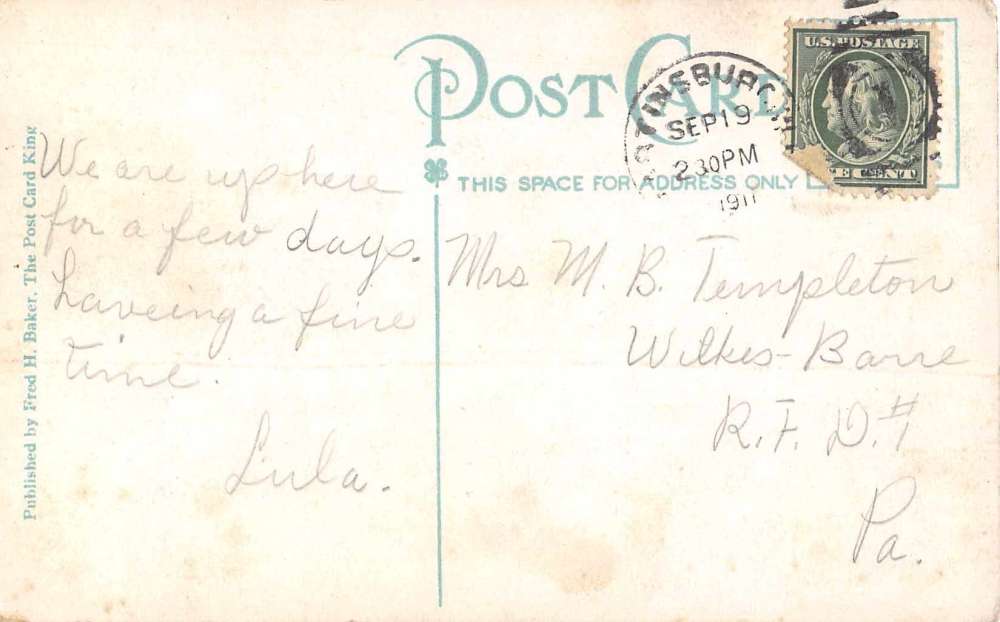 POST CARD
THIS SPACE FOR ADDRESS ONLY
U.S. POSTAGE
CENT
SEP 19
2 30 PM
1911
Published by Fred H. Baker, The Post Card King
We are up here
for a few days.
haveing a fine
time.
Lula.
Mrs M. B. Templeton
Wilkes-Barre
R. F. D. #1
Pa.